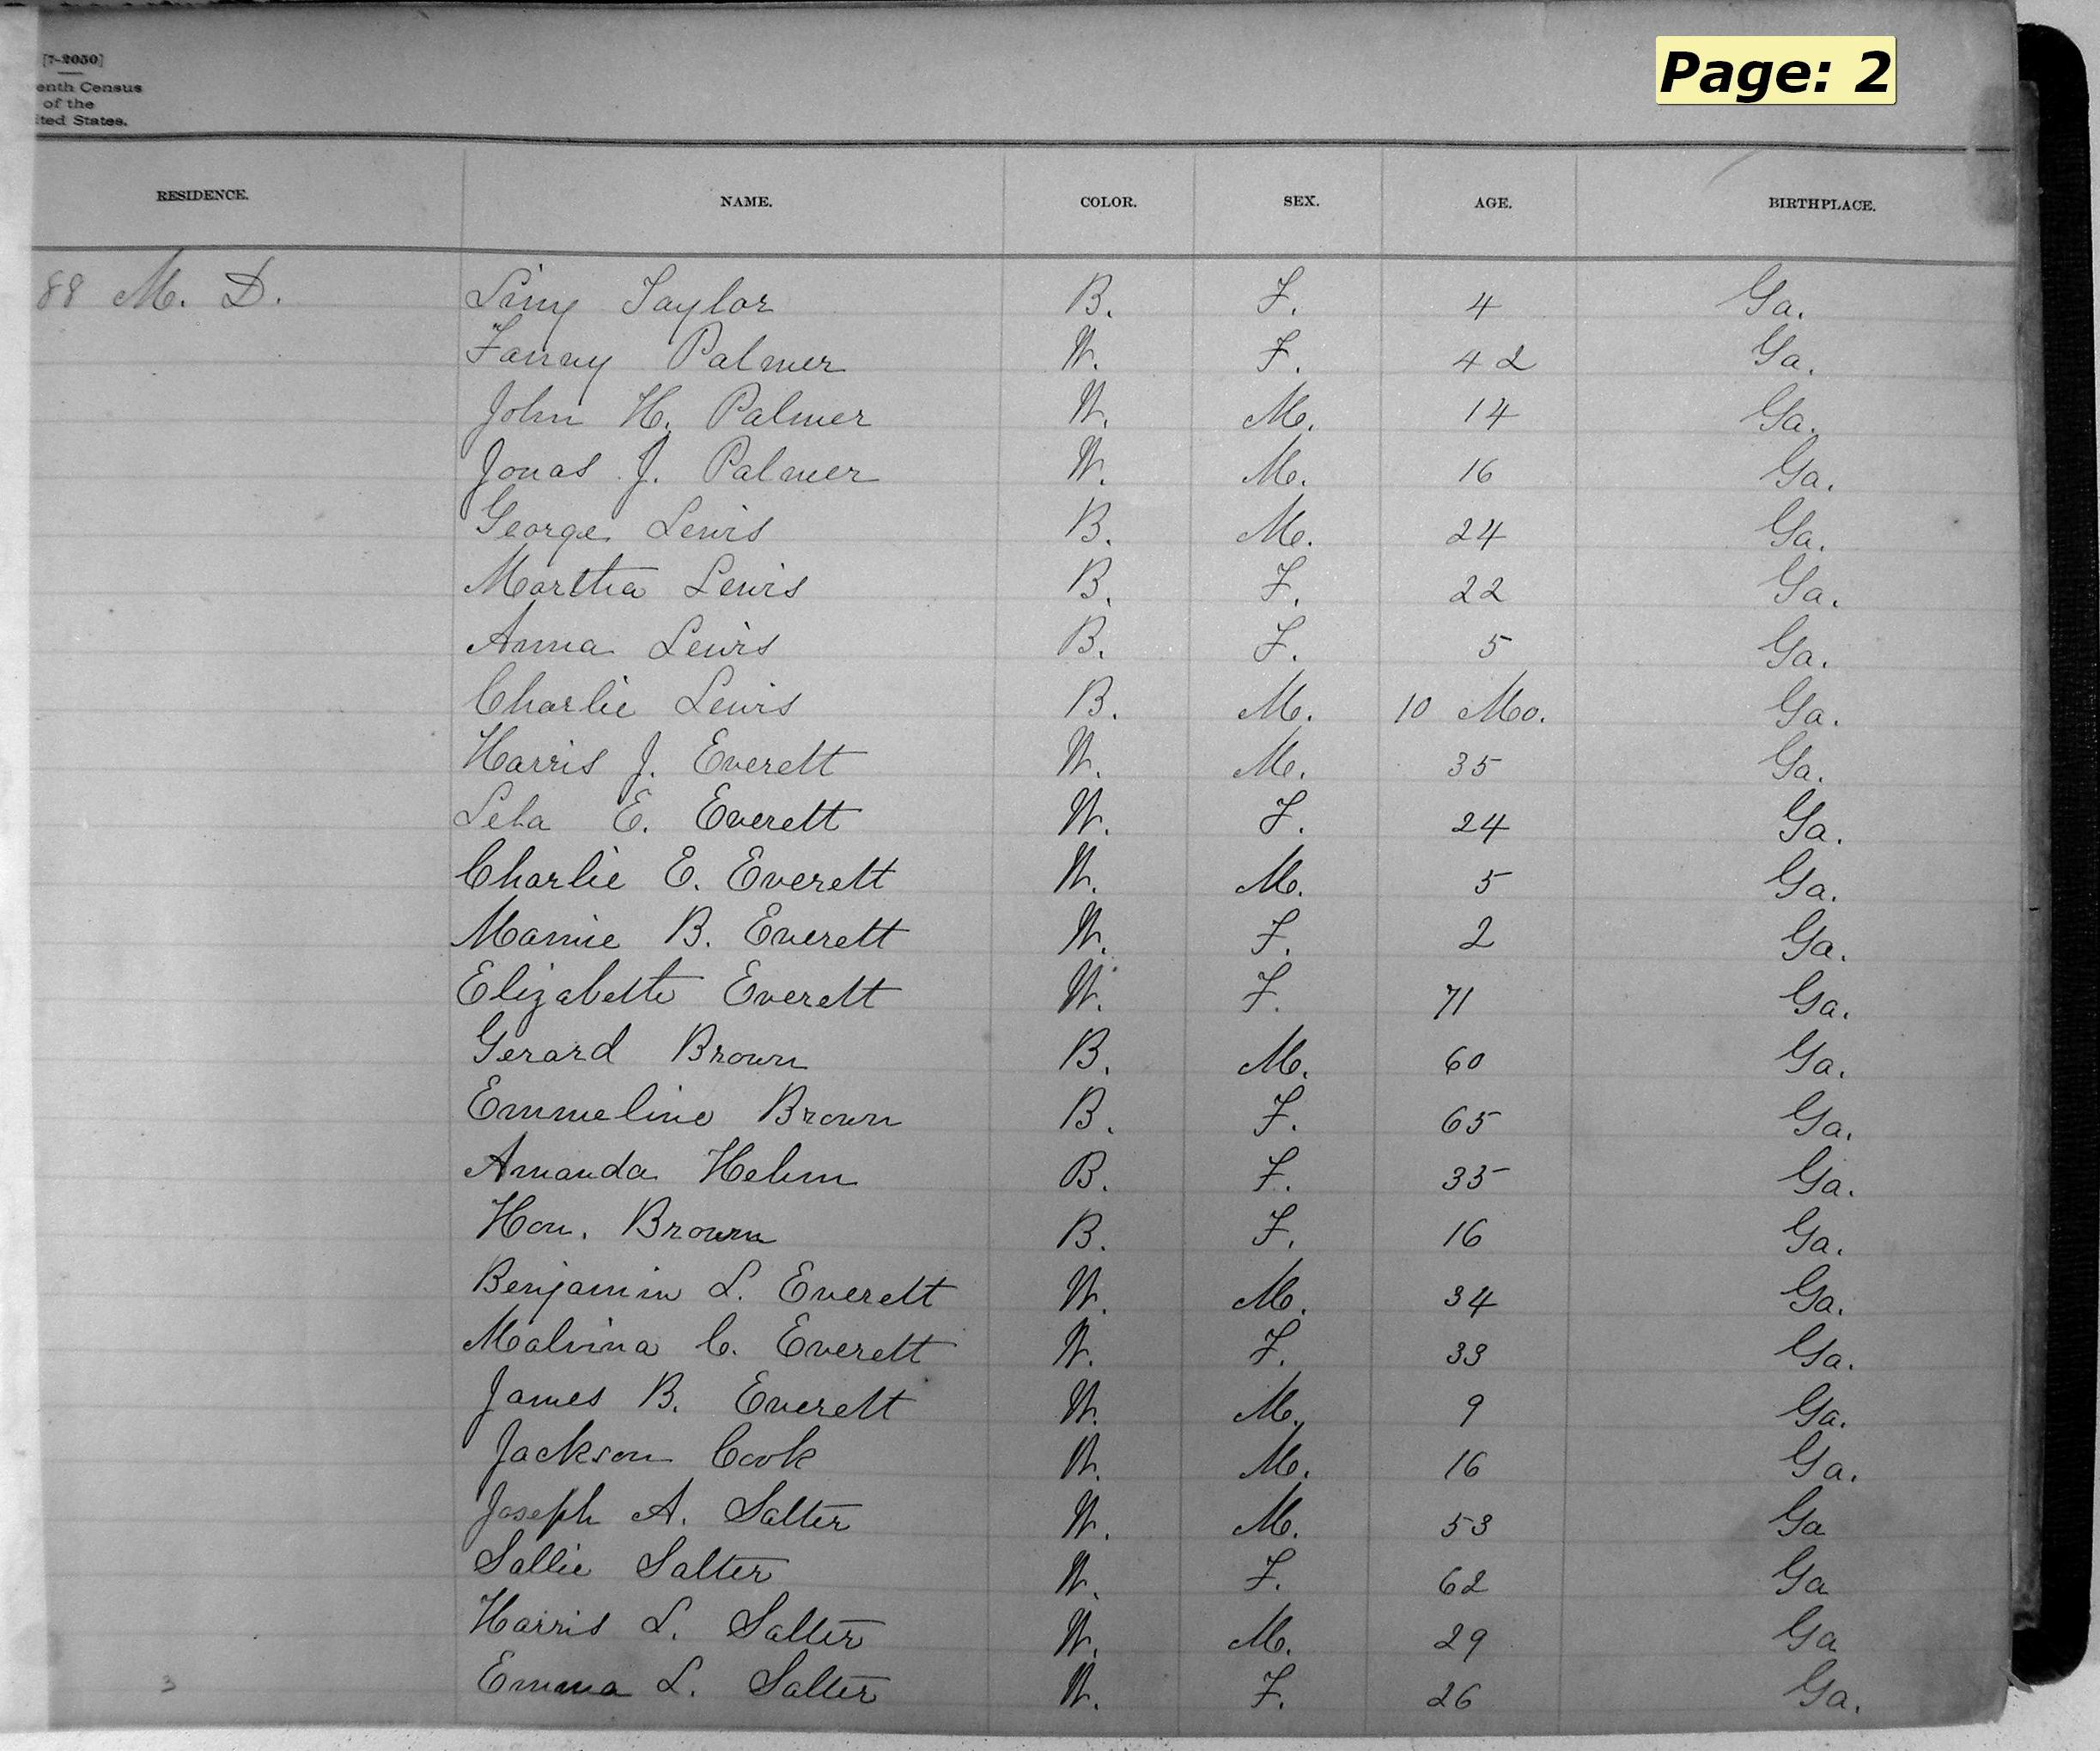 [7-2050]
Page: 2
enth Census
of the
ited States.
RESIDENCE. NAME. COLOR. SEX. AGE. BIRTHPLACE.
88 M. D. Liny Taylor B. F. 4 Ga.
Fanny Palmer W. F. 42 Ga.
John H. Palmer W. M. 14 Ga.
Jonas J. Palmer W. M. 16 Ga.
George Lewis B. M. 24 Ga.
Martha Lewis B. F. 22 Ga.
Anna Lewis B. F. 5 Ga.
Charlie Lewis B. M. 10 Mo. Ga.
Harris J. Everett W. M. 35 Ga.
Lela E. Everett W. F. 24 Ga.
Charlie E. Everett W. M. 5 Ga.
Mamie B. Everett W. F. 2 Ga.
Elizabeth Everett W. F. 71 Ga.
Gerard Brown B. M. 60 Ga.
Emmeline Brown B. F. 65 Ga.
Amanda Helum B. F. 35 Ga.
Hon. Brown B. F. 16 Ga.
Benjamin L. Everett W. M. 34 Ga.
Malvina C. Everett W. F. 33 Ga.
James B. Everett W. M. 9 Ga.
Jackson Cook W. M. 16 Ga.
Joseph A. Salter W. M. 53 Ga
Sallie Salter W. F. 62 Ga
Harris L. Salter W. M. 29 Ga
3 Emma L. Salter W. F. 26 Ga.